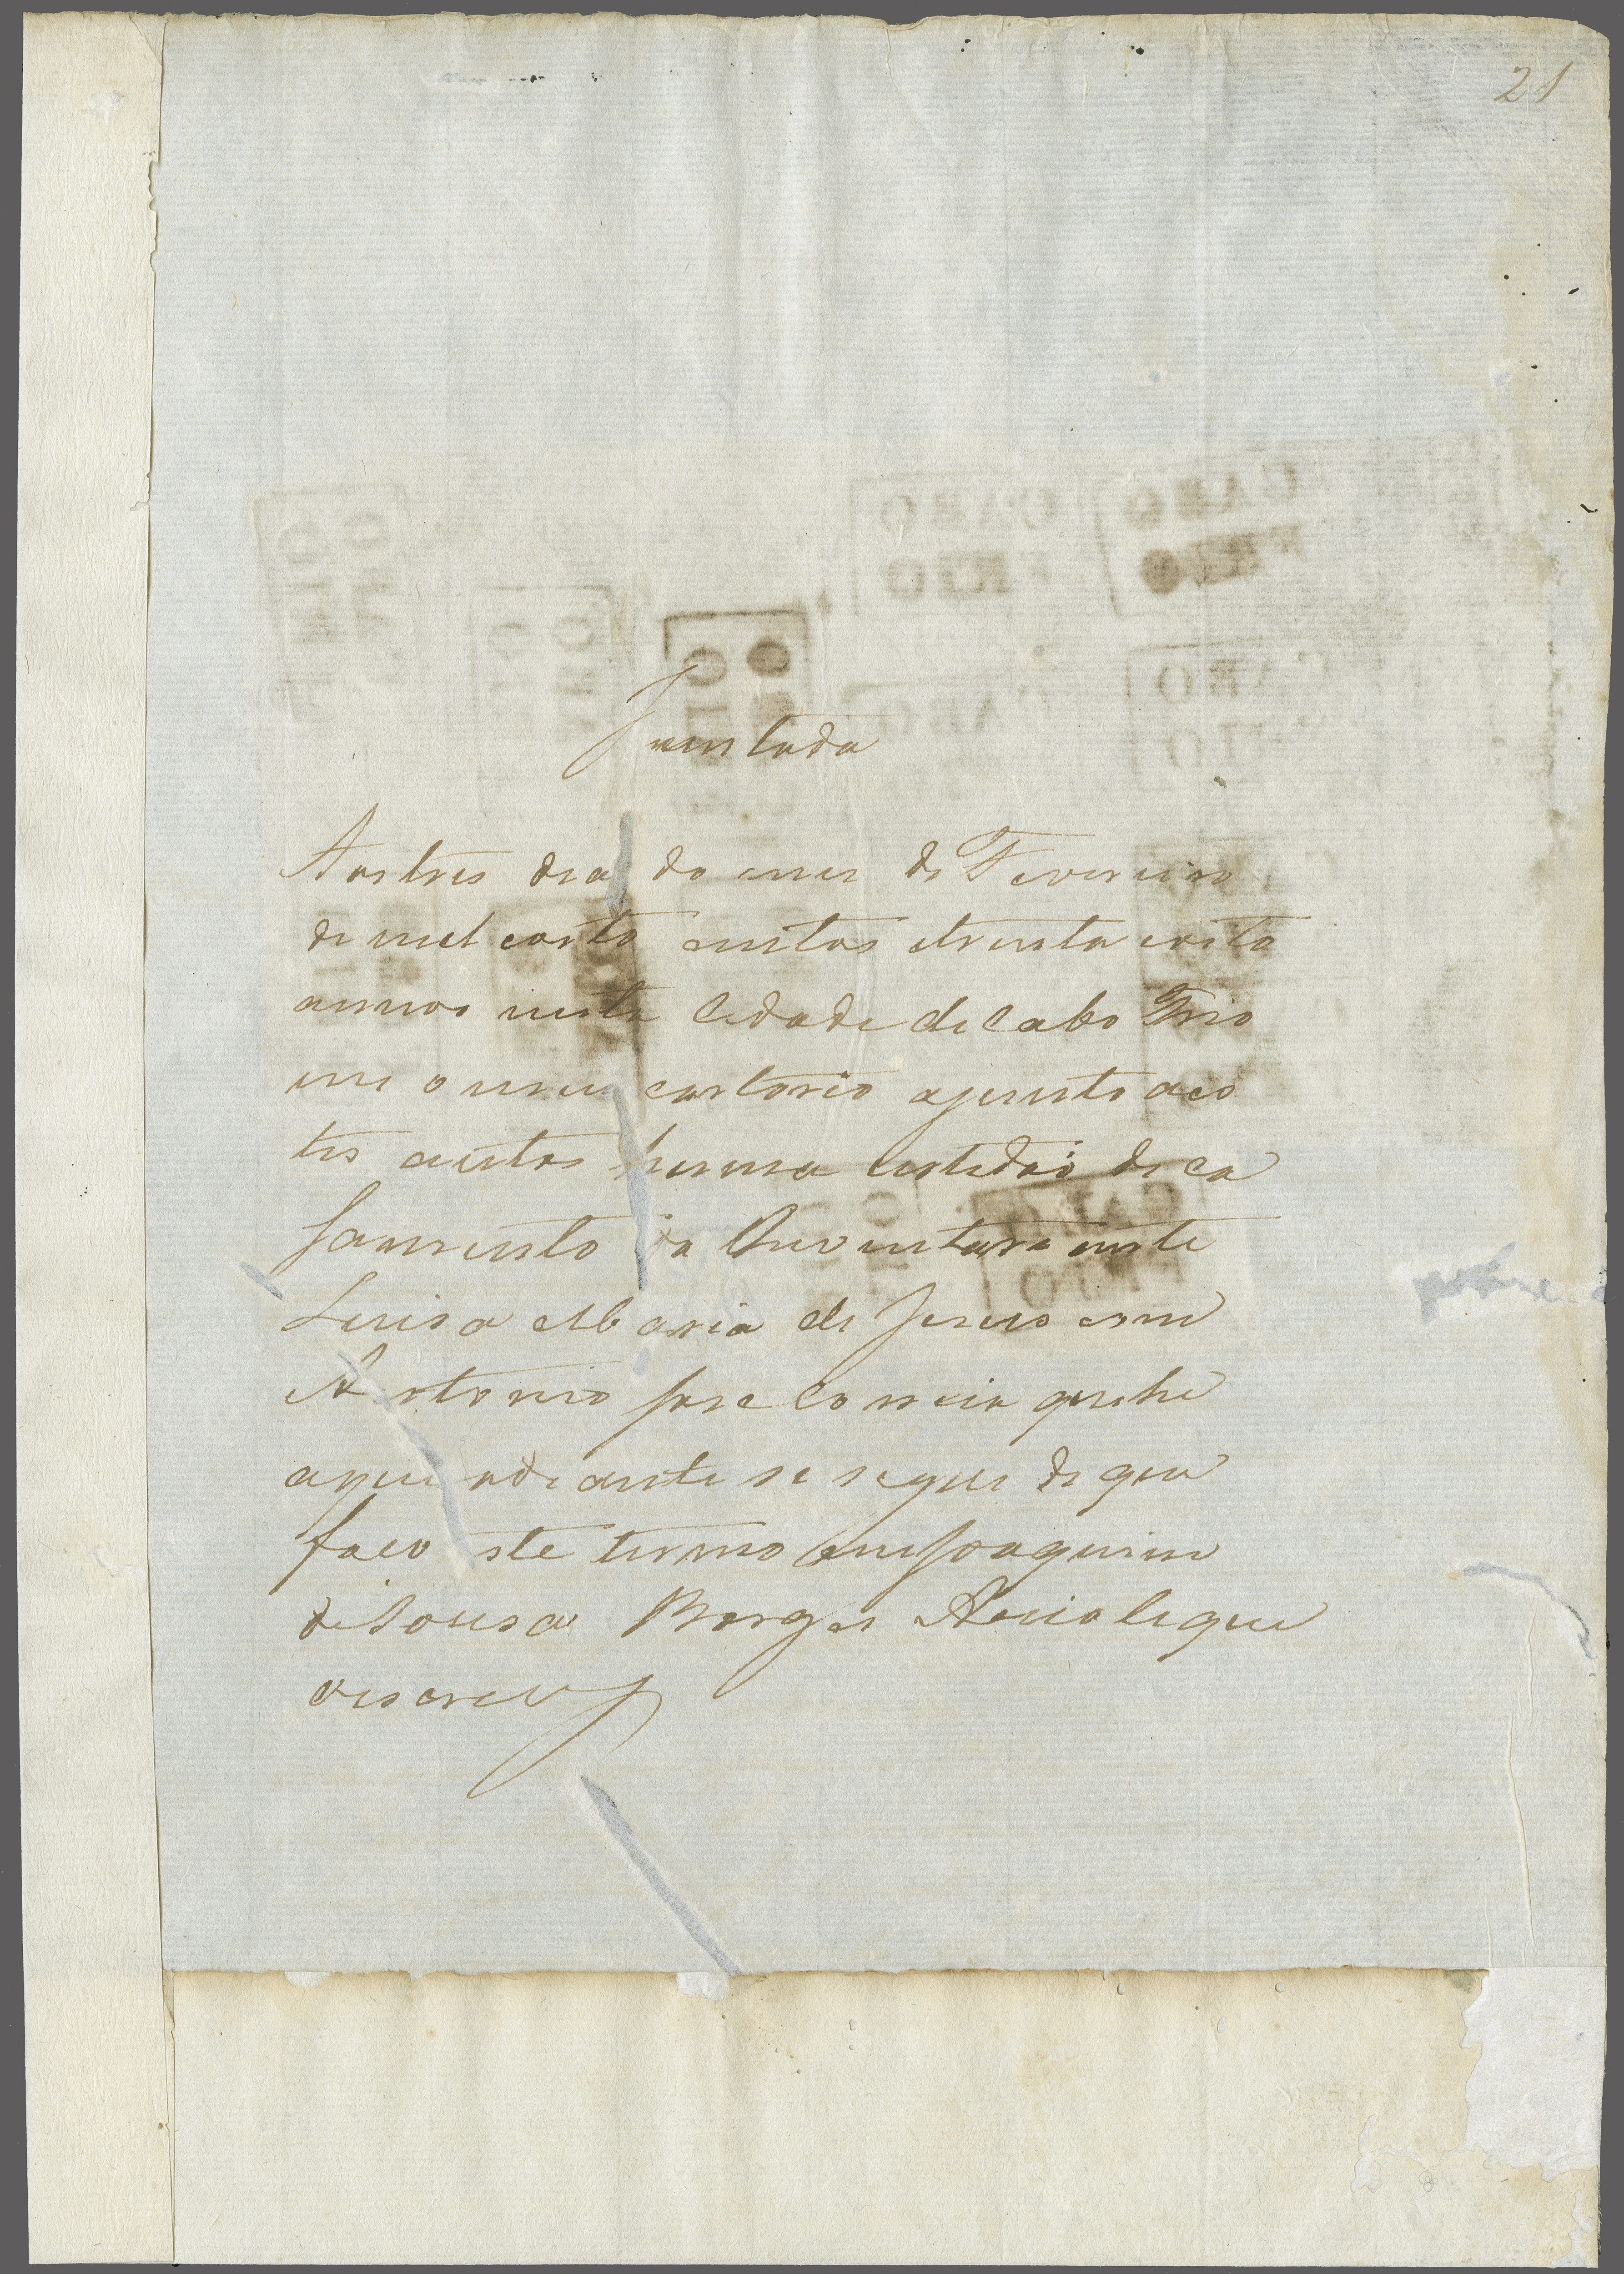 21
Juntada
Aos tres dias do mes de Fevereiro
de mil eoito centos etrinta eoito
annos nesta Cidade de Cabo Frio
em o meu cartorio ajunto aes
tes autos huma certidaõ de ca
samento da Inventariante
Luisa Maria de Jesus com
Antonio Jose Correia que he
aque adiante se segue de que
faço este termo eu Joaquim
de Sousa Borges Accioli que
oescrevy
CABO
FRIO
CABO
FRIO
CABO
FRIO